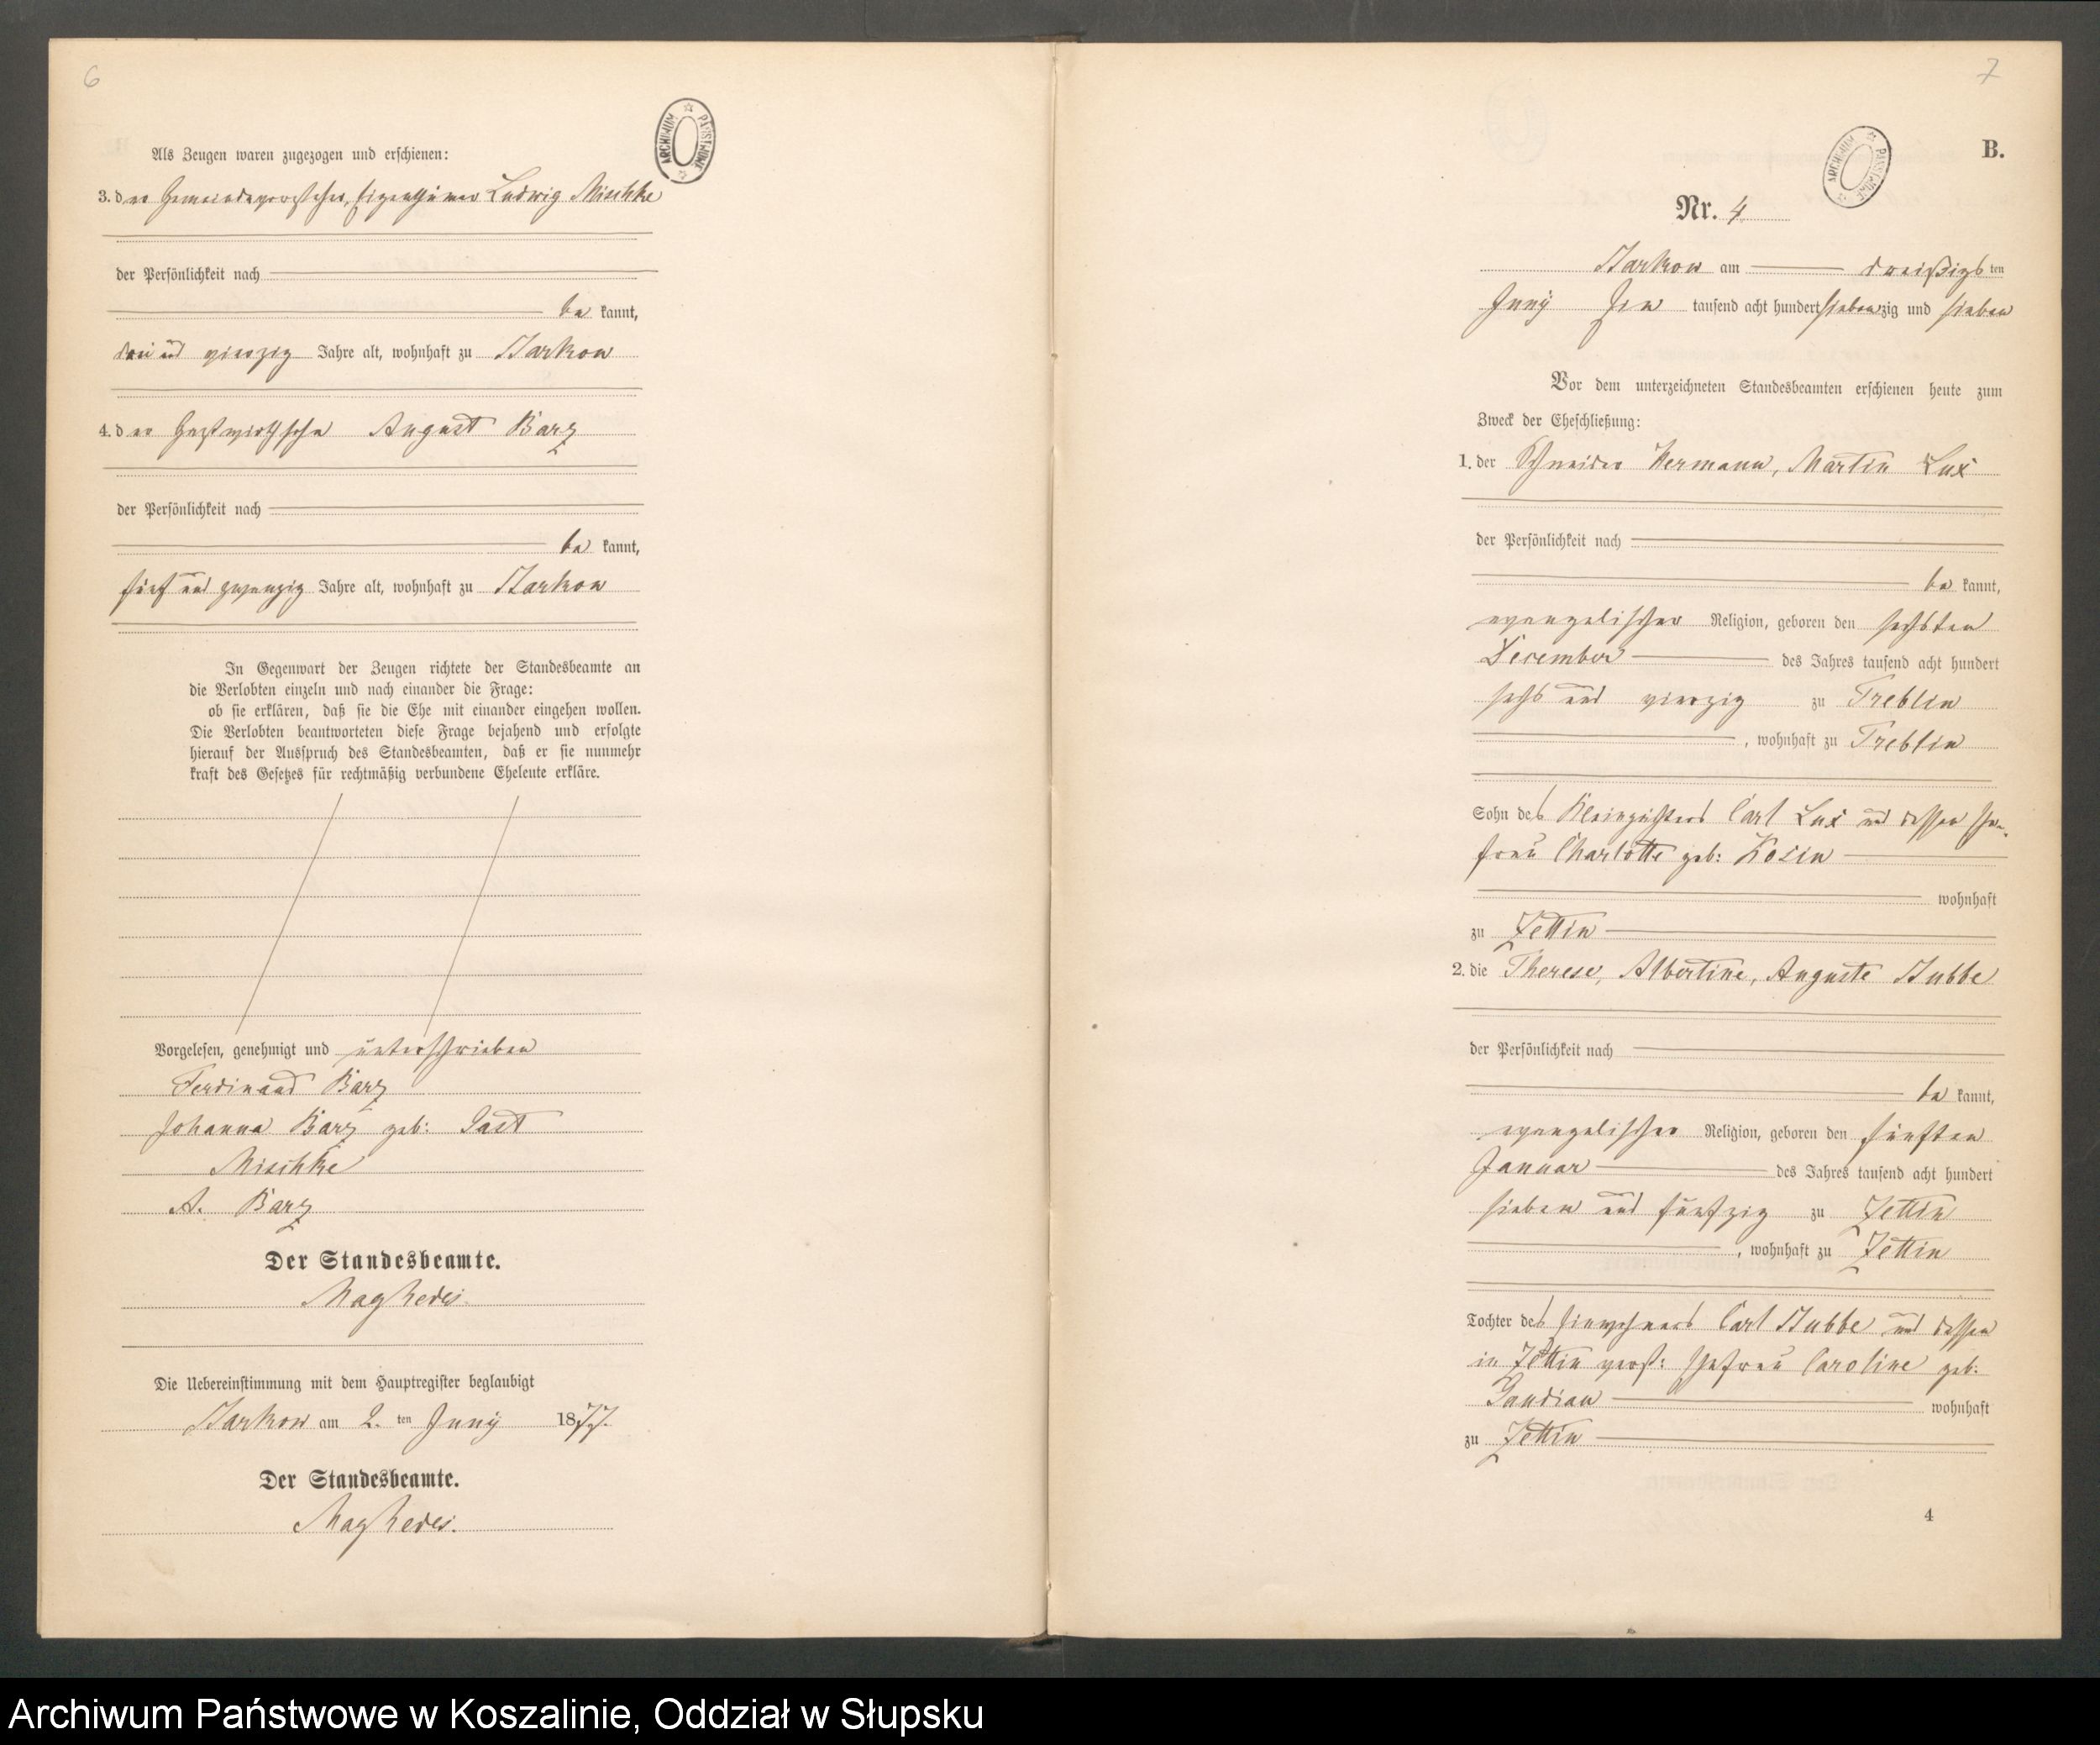 6
Als Zeugen waren zugezogen und erschienen:
3. der Gemeindevorsteher, Eigenthümer Ludwig Mischke
der Persönlichkeit nach
be kannt,
drei und vierzig Jahre alt, wohnhaft zu Starkow
4. der Gastwirthssohn August Barz
der Persönlichkeit nach
be kannt,
fünf und zwanzig Jahre alt, wohnhaft zu Starkow
In Gegenwart der Zeugen richtete der Standesbeamte an
die Verlobten einzeln und nach einander die Frage:
ob sie erklären, daß sie die Ehe mit einander eingehen wollen.
Die Verlobten beantworteten diese Frage bejahend und erfolgte
hierauf der Ausspruch des Standesbeamten, daß er sie nunmehr
kraft des Gesetzes für rechtmäßig verbundene Eheleute erkläre.
Vorgelesen, genehmigt und unterschrieben
Ferdinand Barz
Johanna Barz geb: Gast
Mischke
A. Barz
Der Standesbeamte.
Die Uebereinstimmung mit dem Hauptregister beglaubigt
Starkow am 2. ten Juny 1877.
Der Standesbeamte.
ARCHIWUM PAŃSTWOWE
7
B.
ARCHIWUM PAŃSTWOWE
Nr. 4
Starkow am dreißigsten
Juny tausend acht hundert siebenzig und sieben
Vor dem unterzeichneten Standesbeamten erschienen heute zum
Zweck der Eheschließung:
1. der Schneider Hermann, Martin Lux
der Persönlichkeit nach
be kannt,
evangelischer Religion, geboren den sechsten
December des Jahres tausend acht hundert
sechs und vierzig zu Treblin
, wohnhaft zu Treblin
Sohn des Carl Lux und dessen Ehe-
frau Charlotte geb: Kosin
wohnhaft
zu Zettin
2. die Therese, Albertine, Auguste Stubbe
der Persönlichkeit nach
be kannt,
evangelischer Religion, geboren den fünften
Januar des Jahres tausend acht hundert
sieben und fünfzig zu Zettin
, wohnhaft zu Zettin
Tochter des Einwohners Carl Stubbe und dessen
in Zettin verst: Ehefrau Caroline geb:
Gandian wohnhaft
zu Zettin
4
Archiwum Państwowe w Koszalinie, Oddział w Słupsku